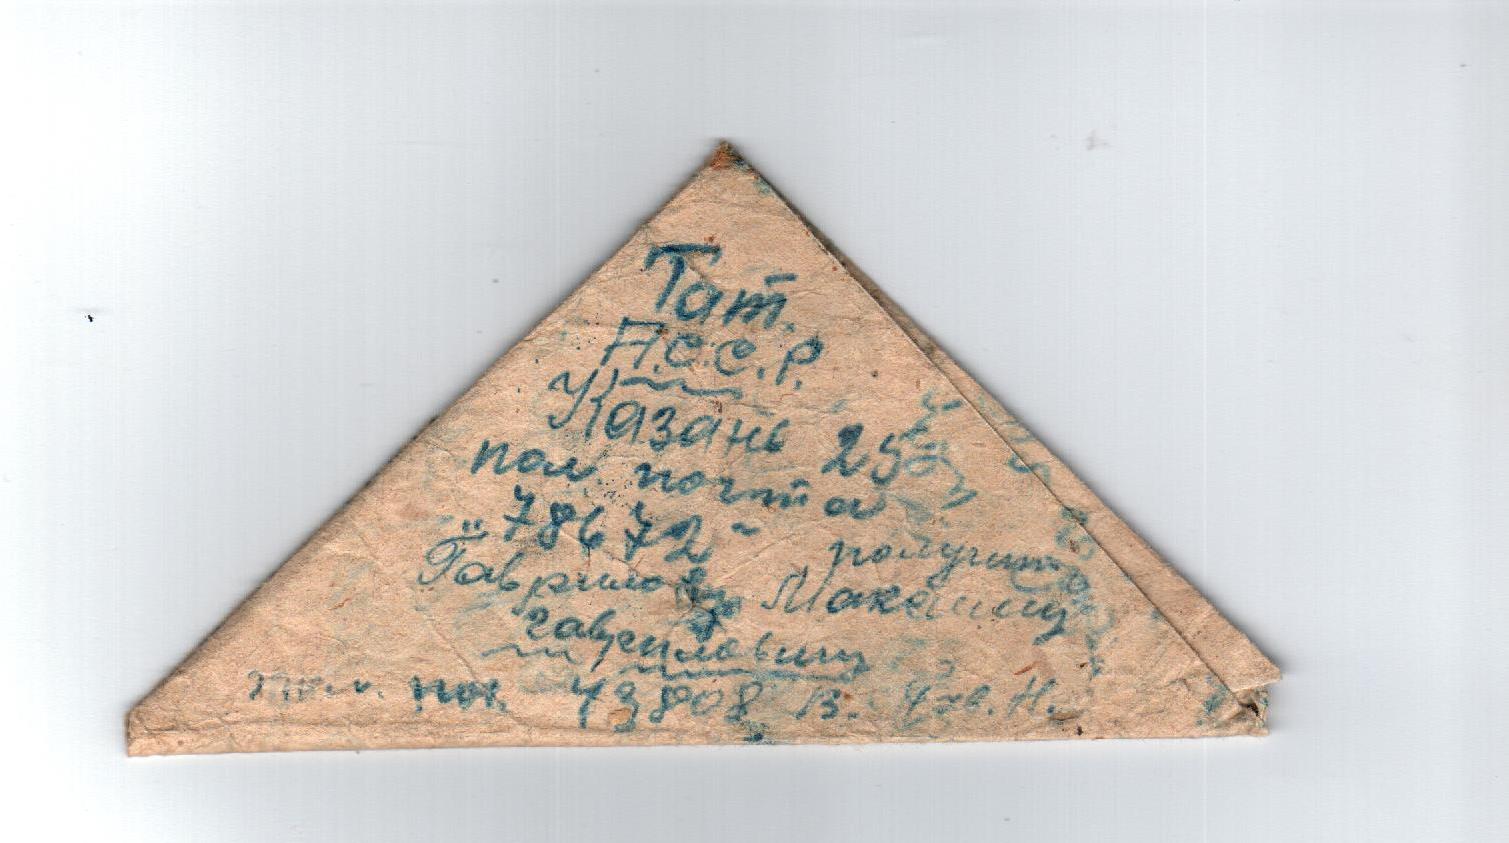 Тат.
А.С.С.Р.
Казань 25
пол. почта
"78672" получить
Гаврилову Максиму
Гавриловичу
пол. поч. 43808 В.